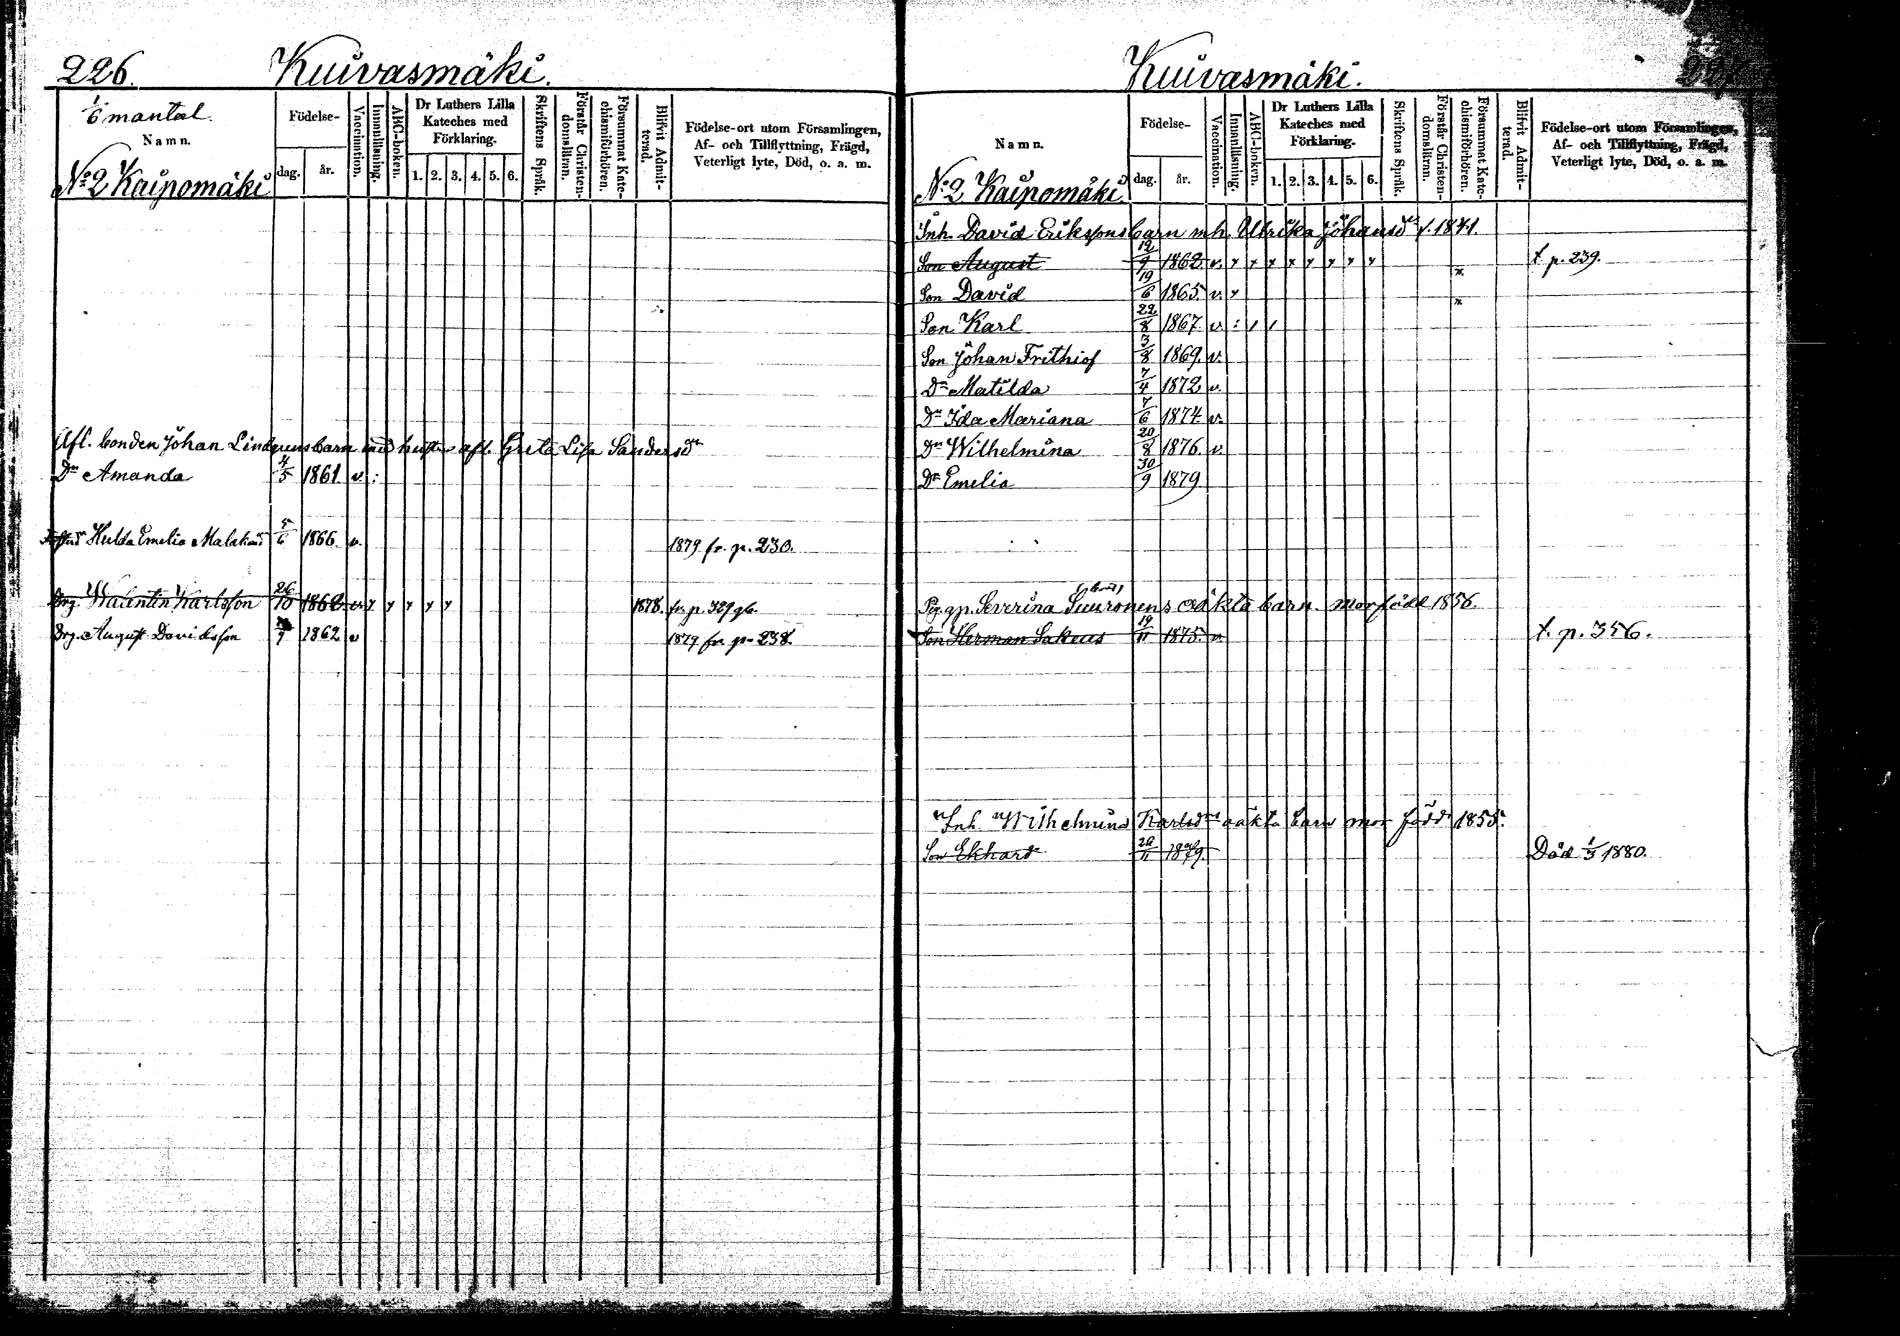 226. Kuivasmäki.
1/6 mantal.
Namn.
Födelse-
dag. år.
Vaccination.
Innanläsning.
ABC-boken.
Dr Luthers Lilla Kateches med Förklaring.
1. 2. 3. 4. 5. 6.
Skriftens Språk.
Förstår Christendomsläran.
Försummat Katechismiförhören.
Blifvit Admitterad.
Födelse-ort utom Församlingen, Af- och Tillflyttning, Frägd, Veterligt lyte, Död, o. a. m.
No 2 Kaipomäki
Afl. bonden Johan Lindgrens barn med hustru afl. Greta Lisa Sandersdr
Dr Amanda 4/5 1861 v :
Hulda Emelia 5/6 1866. v. 1879 fr. p. 230.
Drg. Valentin Karlsson 26/10 1862 v y y y y 1878. fr p. 329
Drg. August Davidsson 9 1862 v 1879 fr p. 238.
Kuivasmäki. 227
Namn.
Födelse-
dag. år.
Vaccination.
Innanläsning.
ABC-boken.
Dr Luthers Lilla Kateches med Förklaring.
1. 2. 3. 4. 5. 6.
Skriftens Språk.
Förstår Christendomsläran.
Försummat Katechismiförhören.
Blifvit Admitterad.
Födelse-ort utom Församlingen, Af- och Tillflyttning, Frägd, Veterligt lyte, Död, o. a. m.
No 2 Kaipomäki
Inh. David Erikssons barn m h. Ulrika Johansdr f. 1841.
Son August 12/9 1862 v. y y y y y y y y x t. p. 239.
Son David 19/6 1865. v. y x
Son Karl 22/8 1867. v. : / /
Son Johan Frithiof 3/8 1869. v.
Dr Matilda 7/4 1872 v.
Dr Ida Mariana 7/6 1874. v.
Dr Wilhelmina 20/8 1876. v.
Dr Emelia 30/9 1879
Pig. gp. Severina Suuronens oäkta barn. mor född 1856.
Son Herman Sakeus 19/11 1875. v. t. p. 356.
Inh. Wilhelmina Karlsdrs oäkta barn mor född 1855.
Son Ekhard 26/11 1879. Död 1/3 1880.